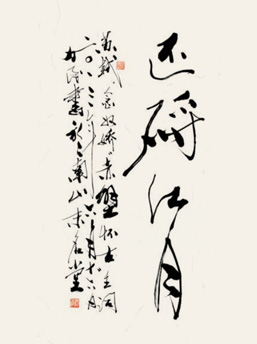 还酹江月
苏轼念奴娇赤壁怀古
二〇〇八年六月十六日
书于南山未名堂